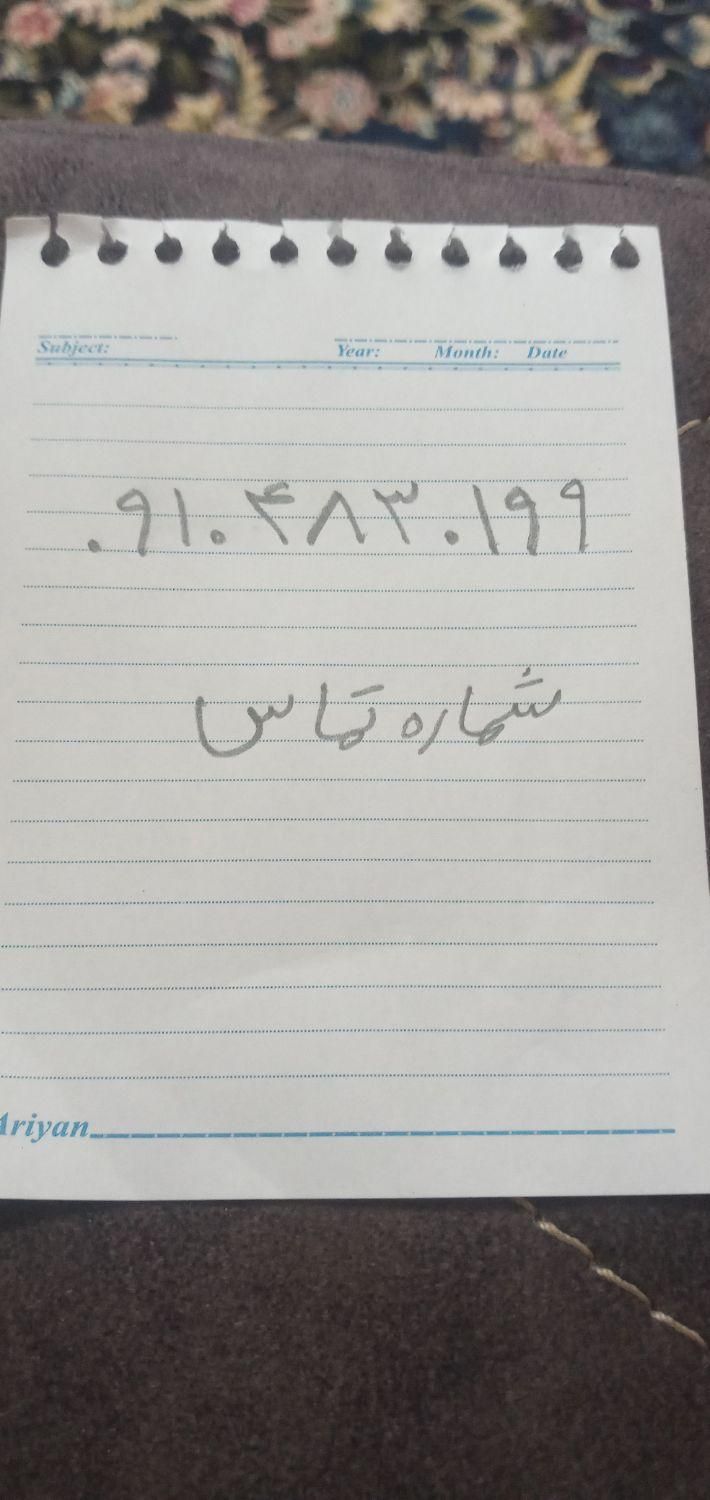 Subject: Year: Month: Date
۰۹۱۰۴۸۳۰۱۹۹
شماره تماس
Ariyan